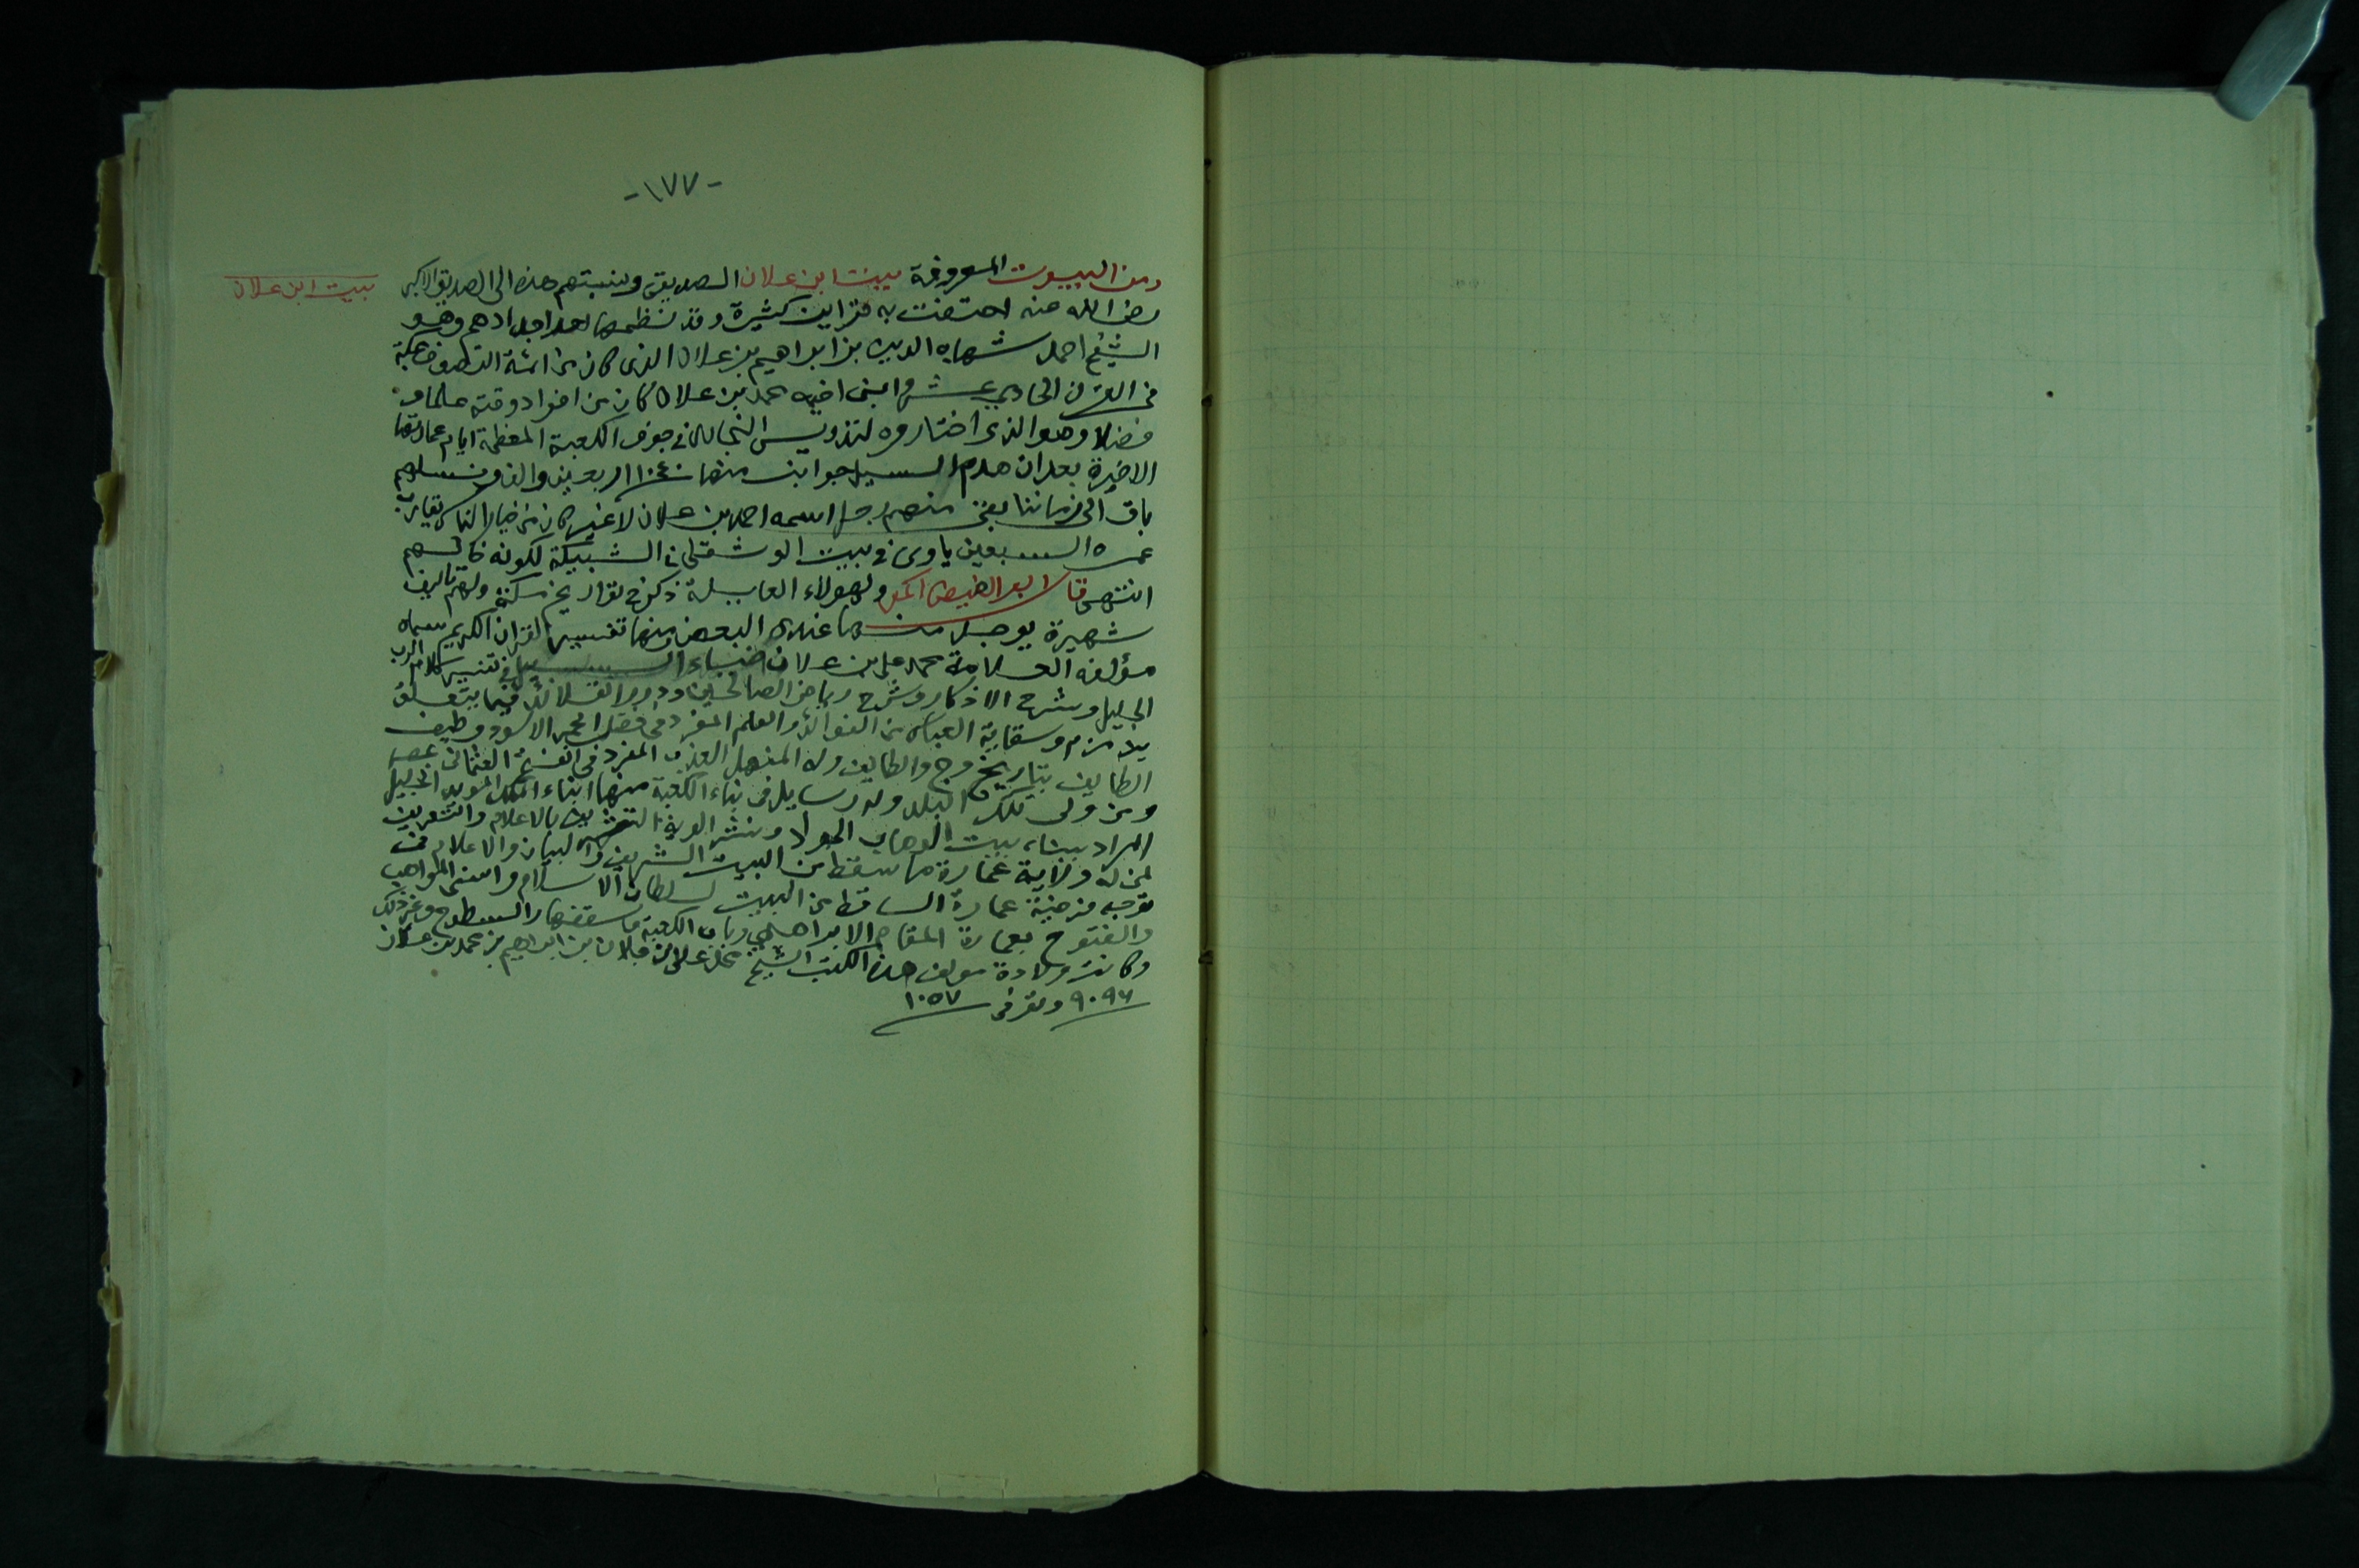 -١٧٧-
بيت ابن علان
ومن البيوت المعروفة بيت ابن علان الصديقى ونسبتهم هذه الى الصديق الاكبر
رضى الله عنه احتفت به قراين كثيرة وقد نظمها احد اجدادهم وهو
الشيخ احمد شهاب الدين بن ابراهيم بن علان الذى كان من ائمة التصوف بمكة
فى القرن الحادي عشر وابنى اخيه محمد بن علان كان من افراد وقته علما و
فضلا وهو الذى اختاروه لتدريس البخارى فى جوف الكعبة المعظمة ايام عمارتها
الاخيرة بعد ان هدم السيل جوانب منها ١٠٤٠ اربعين والف ونسلهم
باق الى زماننا بقى منهم رجل اسمه احمد بن علان لا غير كان من خيار الناس يقارب
عمره السبعين ياوى فى بيت الوشقلى فى الشبيكة لكونه خالهم
انتهى قال ابو الفيض المكى ولهولاء العايلة ذكر فى تواريخ مكة ولهم تاليف
شهيرة يوجد منها عندى البعض ومنها تفسير القران الكريم سماه
مؤلفه العلامة محمد على بن علان ضياء السبيل فى تفسير كلام الرب
الجليل وشرح الاذكار وشرح رياض الصالحين ودرر القلائد فيما يتعلق
بزمزم وسقاية العباس من الفوائد والعلم المفرد فى فضل الحجر الاسود وطيف
الطايف بتاريخ وج والطايف وله المنهل العذب المفرد فى الفتح العثمانى بمصر
ومن ولى تلك البلد وله رسايل فى بناء الكعبة منها انباء الملك المويد الجليل
المراد ببناء بيت الوهاب الجواد ونشر الوية التشريف بالاعلام والتعريف
لمن له ولاية عمارة ما سقط من البيت الشريف والبيان والاعلام فى
توجيه فرضية عمارة الساقط من البيت لسلطان الاسلام واسنى المواهب
والفتوح بعمارة المقام الابراهيمى وباب الكعبة وسقفها والسطوح وغير ذلك
وكانت ولادة مولف هذه الكتب الشيخ محمد على بن علان بن ابراهيم بن محمد بن علان
٩٠٩٦ وتوفى ١٠٥٧